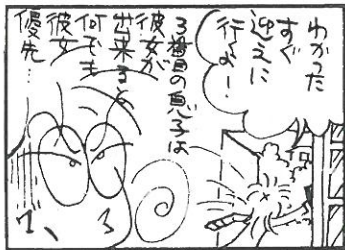 わかった
すぐ
迎えに
行くよ!
3番目の息子は
彼女が
出来ると
何でも
彼女
優先…